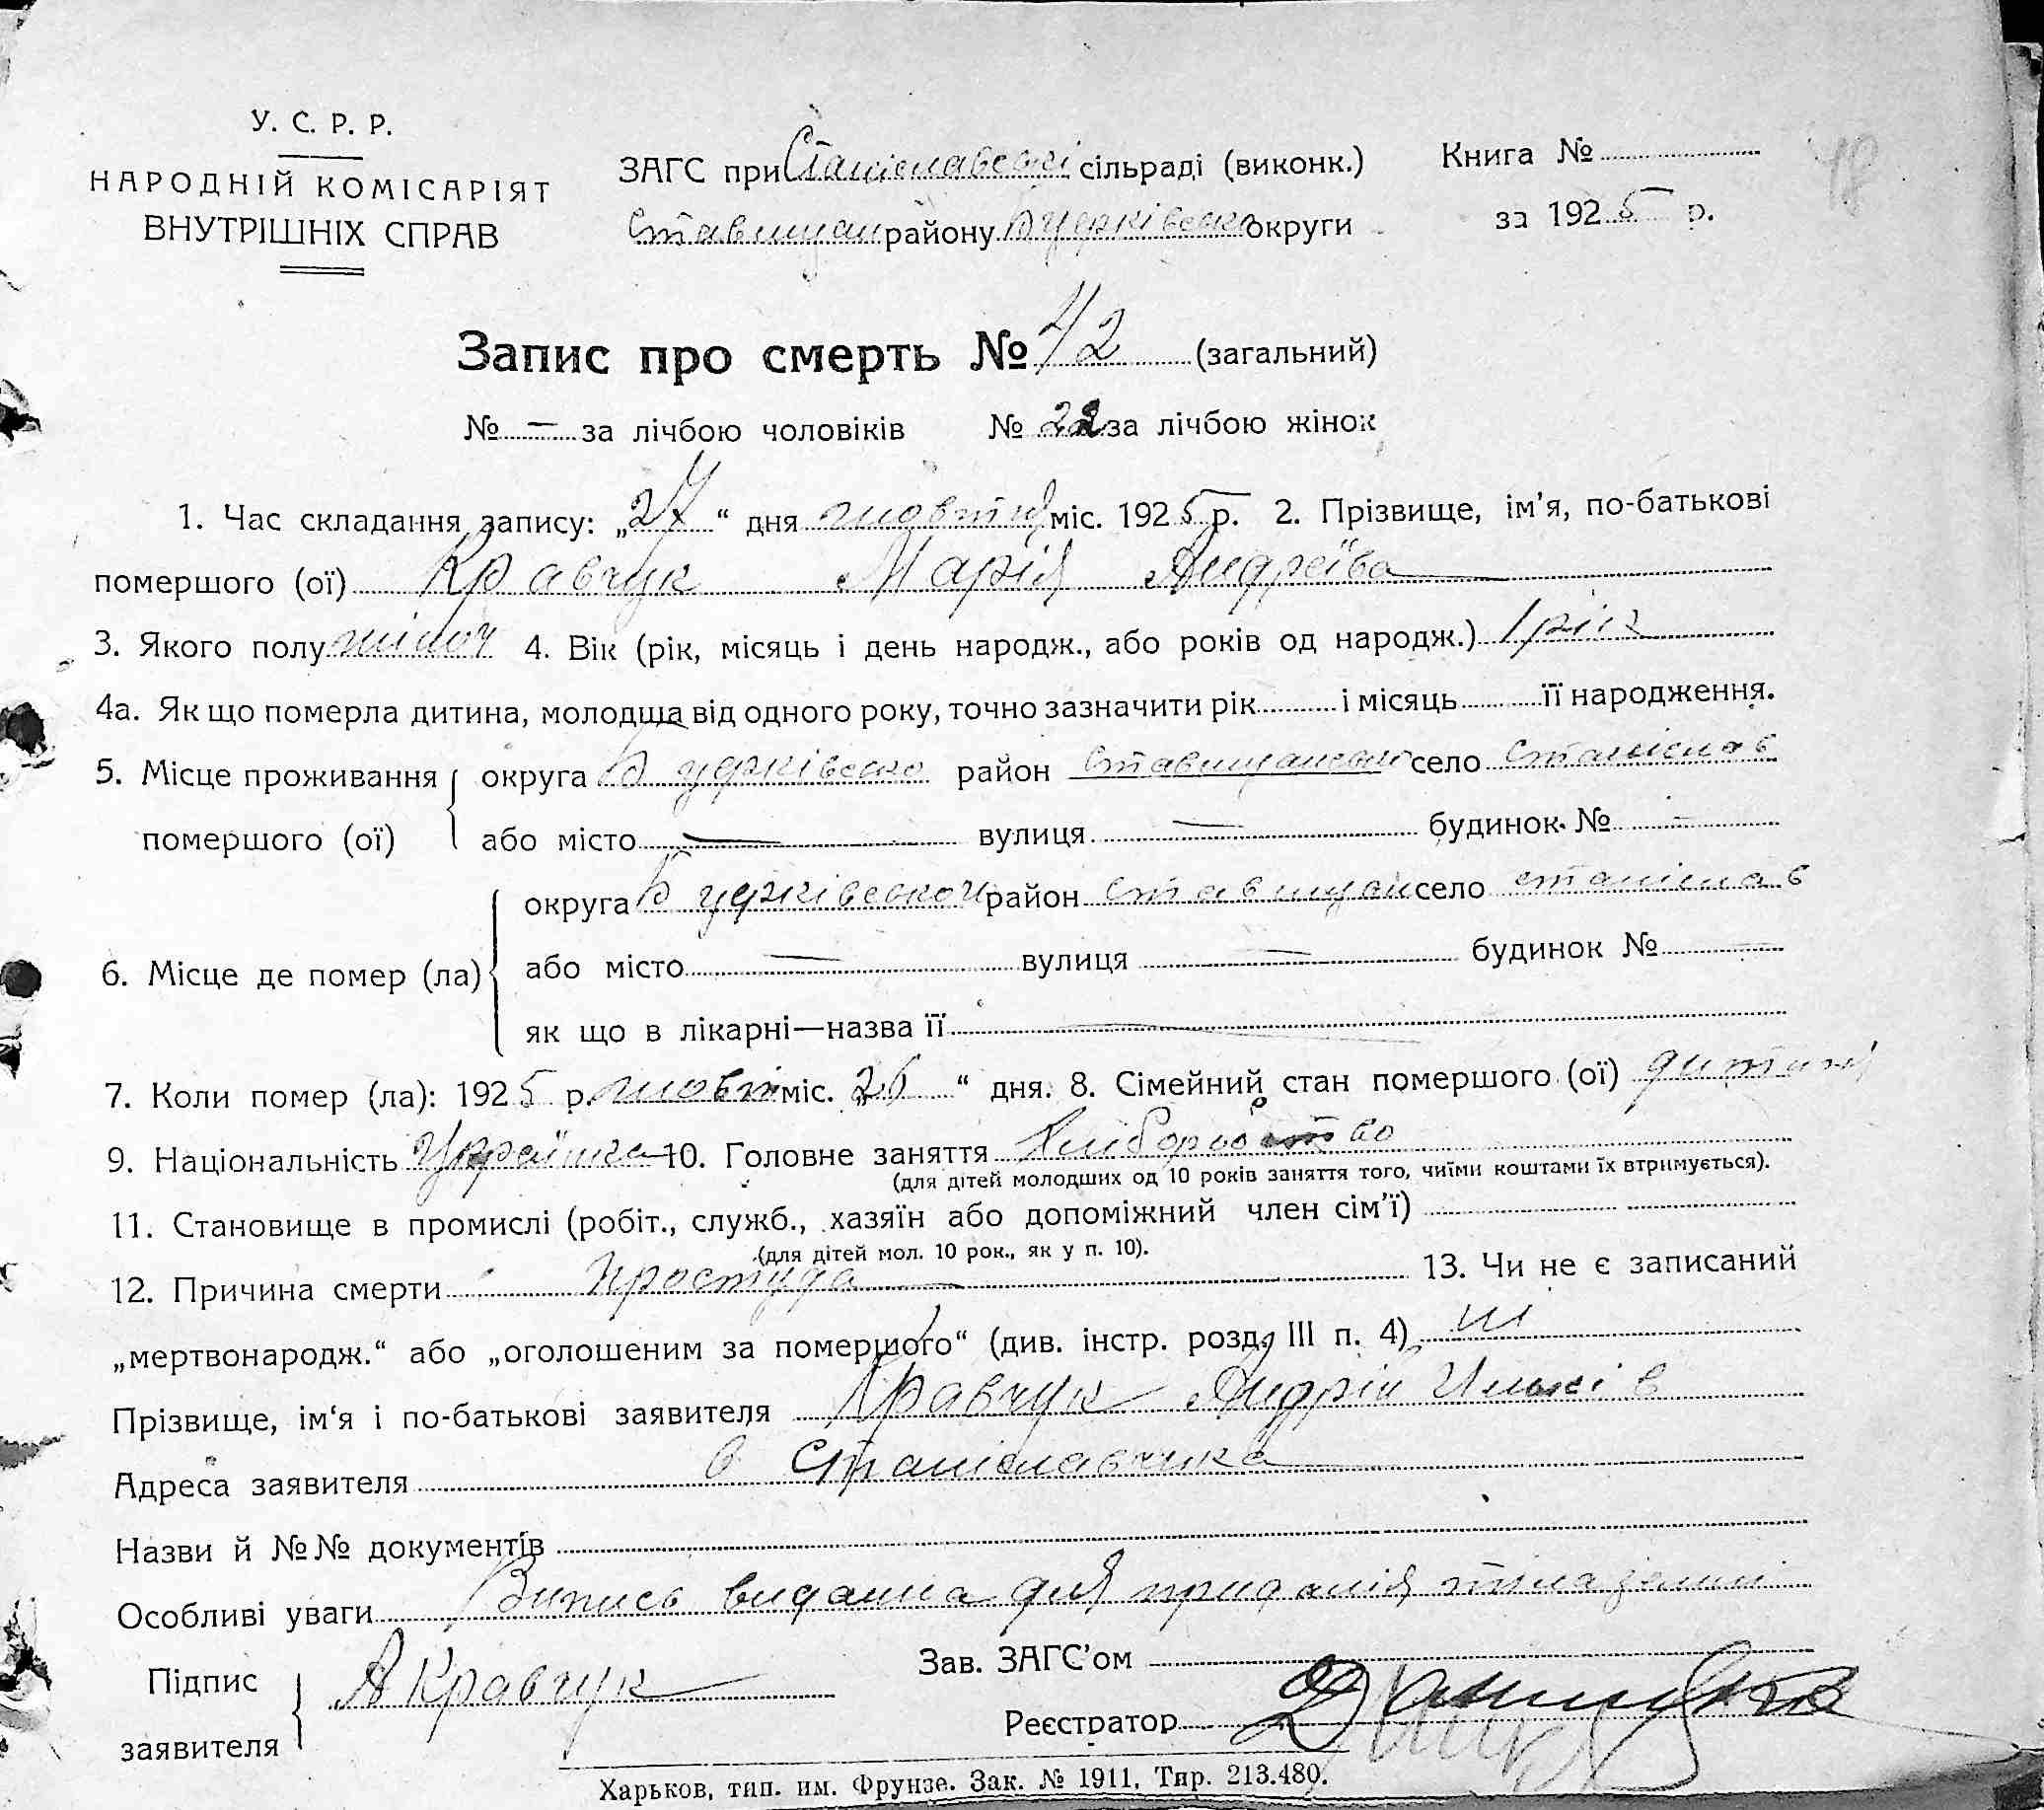 У. С. Р. Р.
НАРОДНІЙ КОМІСАРІЯТ
ВНУТРІШНІХ СПРАВ
ЗАГС при Станіславській сільраді (виконк.)
Ставищан району Б церківської округи
Книга №
за 1925 р.
48
Запис про смерть № 42 (загальний)
№ — за лічбою чоловіків № 22 за лічбою жінок
1. Час складання запису: „27“ дня жовтня міс. 1925 р. 2. Прізвище, ім'я, по-батькові
помершого (ої) Кравчук Марія Андреїва
3. Якого полу жіноч 4. Вік (рік, місяць і день народж., або років од народж.) 1 рік
4а. Як що померла дитина, молодша від одного року, точно зазначити рік і місяць її народження.
5. Місце проживання помершого (ої) округа Б церківсько район Ставищанськ село Станіслав
або місто — вулиця — будинок № —
6. Місце де помер (ла) округа Б церківської район Ставищан село Станіслав
або місто — вулиця — будинок № —
як що в лікарні—назва її —
7. Коли помер (ла): 1925 р. жовт міс. „26“ дня. 8. Сімейний стан помершого (ої) дитина
9. Національність Українка 10. Головне заняття Хліборобство
(для дітей молодших од 10 років заняття того, чиїми коштами їх втримується).
11. Становище в промислі (робіт., служб., хазяїн або допоміжний член сім'ї)
(для дітей мол. 10 рок., як у п. 10).
12. Причина смерти простуда 13. Чи не є записаний
„мертвонародж.“ або „оголошеним за помершого“ (див. інстр. розд. III п. 4) ні
Прізвище, ім'я і по-батькові заявителя Кравчук Андрій Ільків
Адреса заявителя с Станіславчика
Назви й №№ документів
Особливі уваги Випись видана для приданія тіла землі
Підпис заявителя А Кравчук
Зав. ЗАГС'ом
Реєстратор
Харьков, тип. им. Фрунзе. Зак. № 1911. Тир. 213.480.